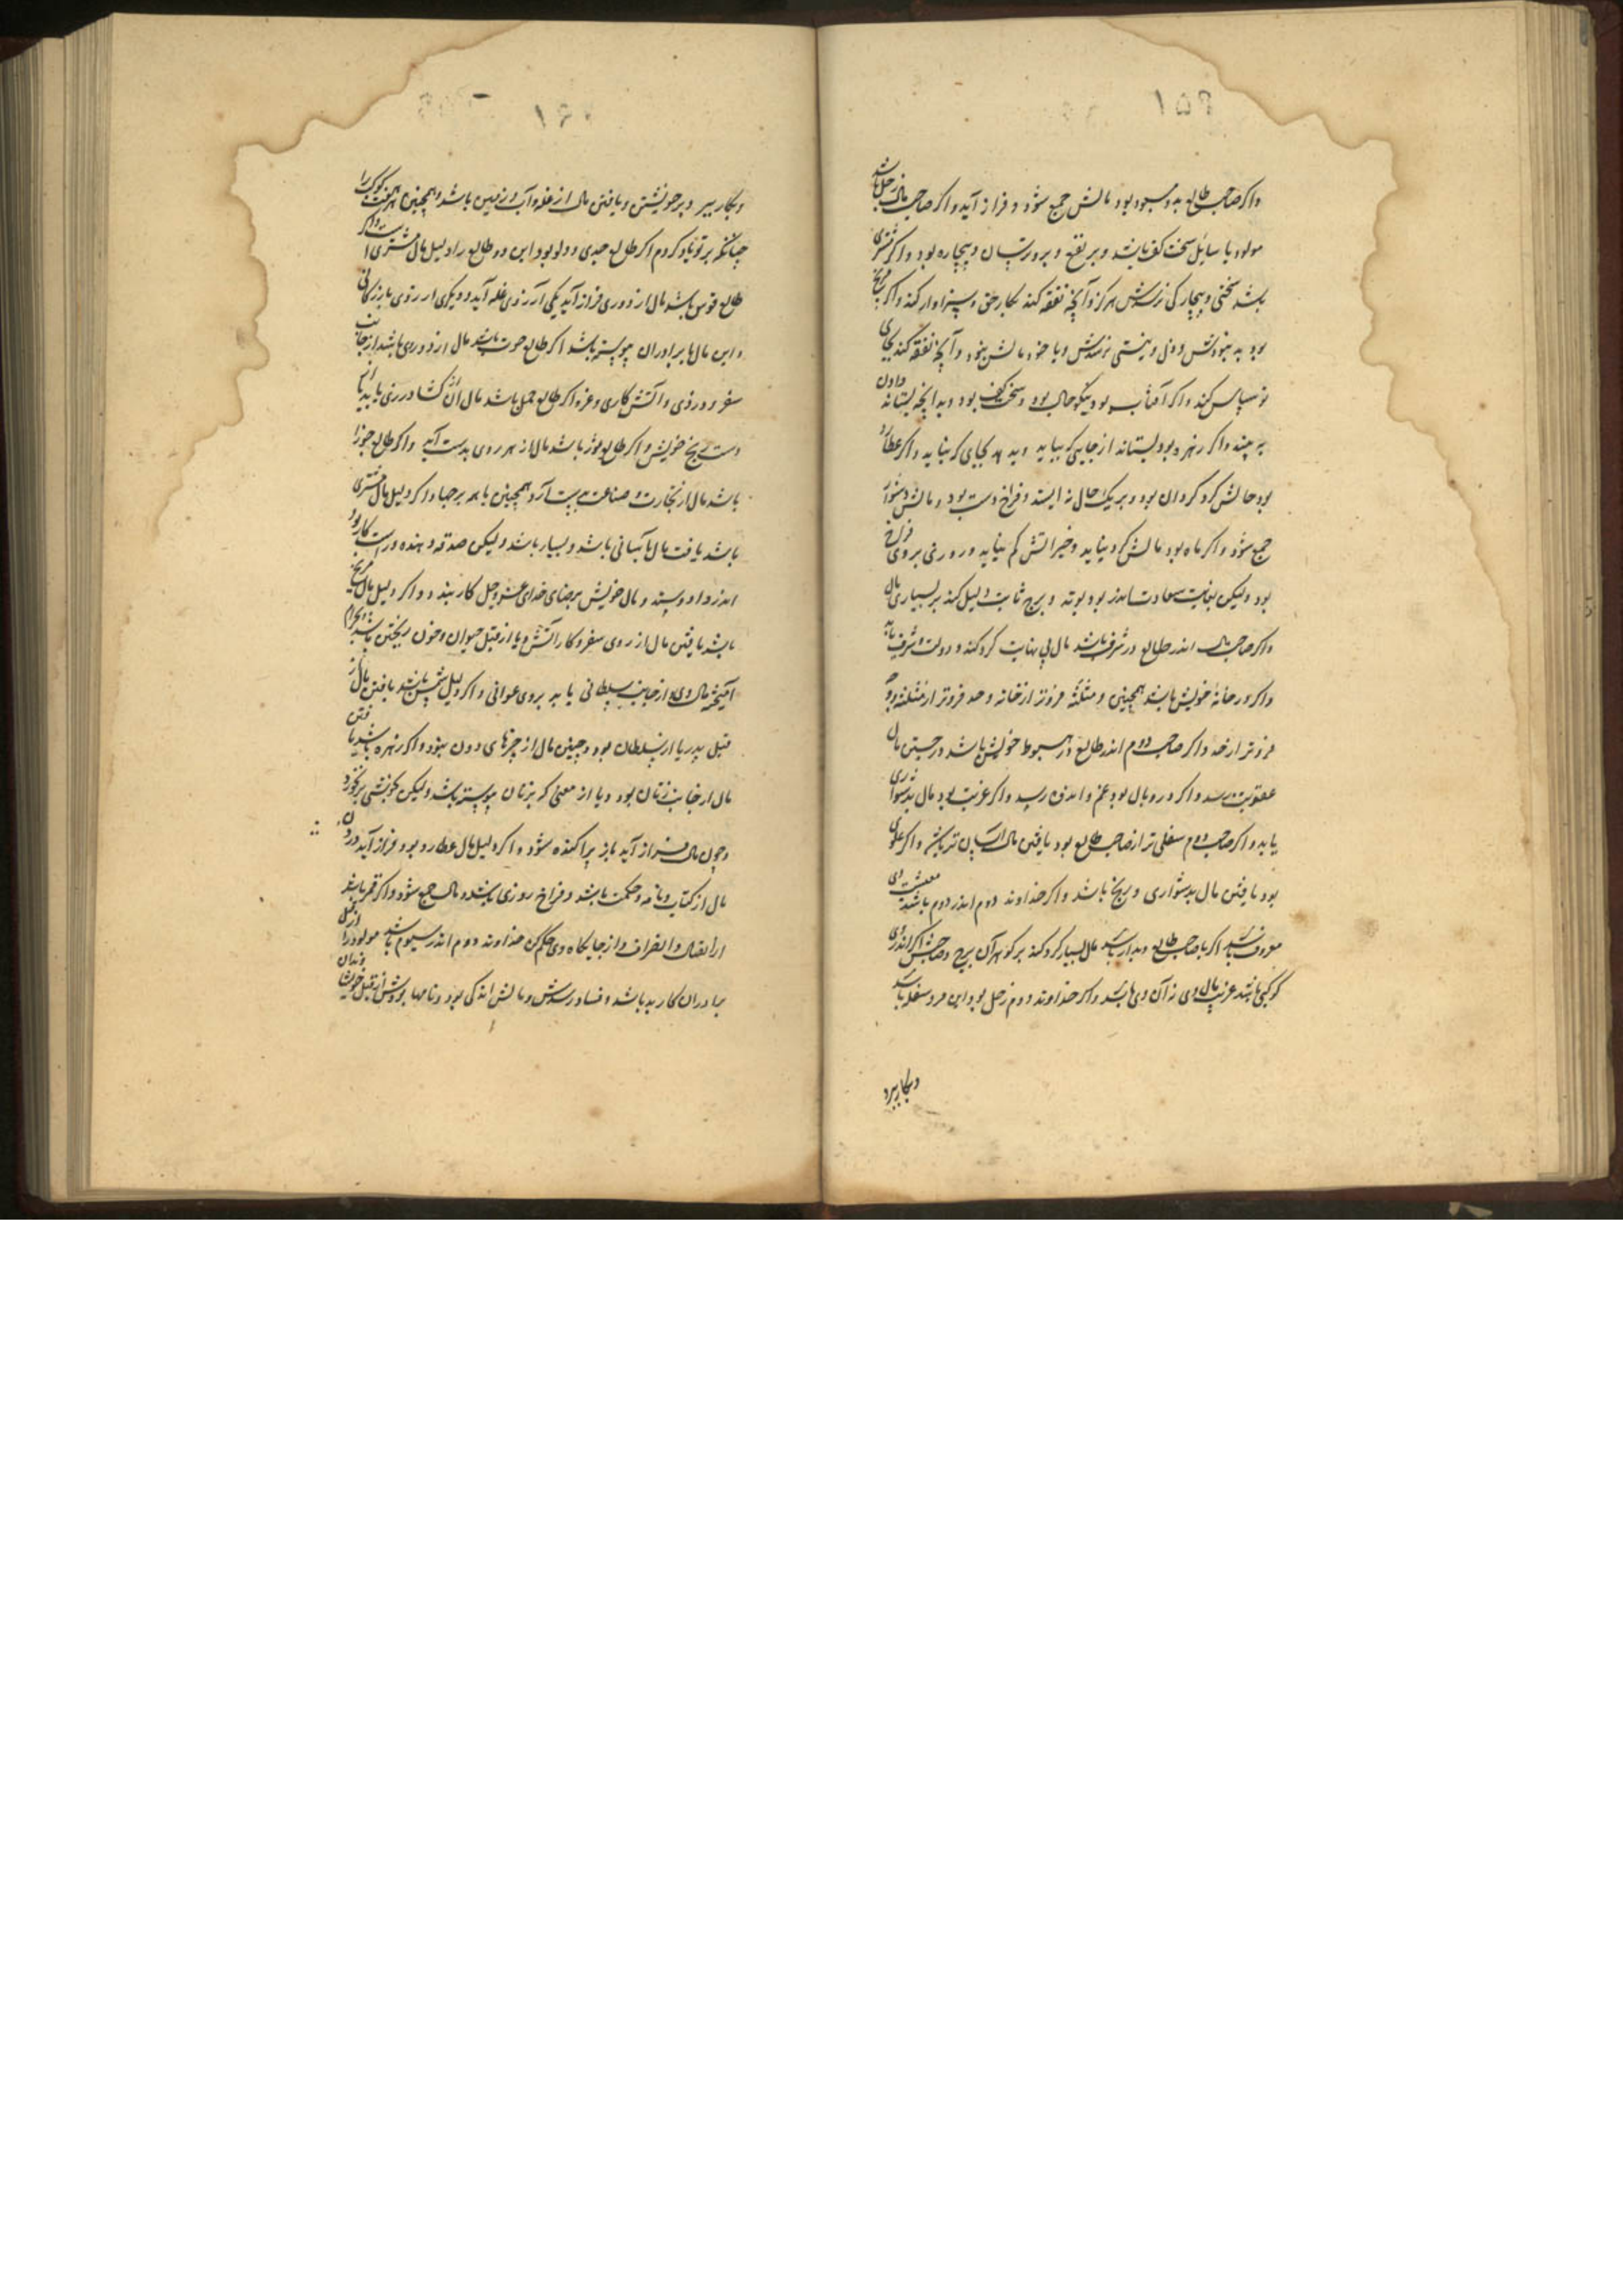 واکر صاحب طالع بدو مسعود بود مالش جمع شود و فراز آید واکر صاحب مال زحل باشد
مولود با سایل سخت کف باشد و بر نفع و بر درویشان و بیچاره بود واکر مشتری
باشد سختی و بیچارکی نرسدش هرکز و آنچه نفقه کند بکار حق و سزاوار کند واکر مریخ
بود بد نبودش و ذل و نیستی نرسدش و با خود مالش بنود و آنچه نفقه کند بجای
نوسپاس کند واکر آفتاب بود نیکو حال بود و سخت کف بود و بدانچه بستاند دادن
بر چیند واکر زهره بود بستاند از جایی که بیاید و بدهد بجای که نباید واکر عطارد
بود حالش کرد کردان بود و بر یک حال نه ایستد و فراخ دست بود و مالش دشوار
جمع شود واکر ماه بود مالش کرد نیاید و خیراتش کم نیاید و روزی بروی فراخ
بود ولیکن بغایت سعادت اندر بود بوتد و برج ثابت دلیل کند بر بسیاری مال
واکر صاحب مال اندر طالع در شرف باشد مال بی نهایت کرد کند و دولت و شرف یابد
واکر در خانهٔ خویش باشد همچنین و مثلثه فروتر از خانه و حد فروتر از مثلثه و وجه
فروتر از حد واکر صاحب دوم اندر طالع در هبوط خویش باشد در جستن مال
عقوبت رسد واکر در وبال بود غم و اندوه رسد واکر غریب بود مال بدشواری
یابد واکر صاحب دوم سفلی تر از صاحب طالع بود یافتن مال آسان تر باشد واکر علوی
بود یافتن مال بدشواری و رنج باشد واکر خداوند دوم اندر دوم باشد معیشت وی
معروف باشد اکر با صاحب طالع دیدار باشد مال بسیار کرد کند بر کوهر آن برج و صاحبش اکر اندر وی
کوکبی باشد غریب مال وی نه آن وی باشد واکر خداوند دوم زحل بود این مرد سفله باشد
و بکار برد
و بکار ببرد و بر خویشتن و یافتن مال از غله و آب و زمین باشد و همچنین هر هفت کوکب را
چنانکه بر تو یاد کردم اکر طالع جدی و دلو بود این دو طالع را دلیل مال مشتری است واکر
طالع قوس باشد مال از دو روی فراز آید یکی از روی غله آید و دیکری از روی بازرکانی
و این مال ها برادران پیوسته باشد اکر طالع حوت باشد مال از دو روی باشد از جانب
سفر و درزی و آتش کاری و غزه اکر طالع حمل باشد مال آن کشاورزی باید یا از
دست رنج خویش واکر طالع ثور باشد مال از هر روی بدست آید واکر طالع جوزا
باشد مال از تجارت و صناعت بدست آرد همچنین با همه برجها واکر دلیل مال مشتری
باشد یافت مال بآسانی باشد و بسیار باشد ولیکن صدقه دهنده و راست کار بود
اندر داد و ستد و مال خویش برضای خدای عز و جل کار بندد واکر دلیل مال مریخ
باشد یافتن مال از روی سفر و کار آتش و یا از قبل حیوان و خون ریختن باشد و بحرام
آمیخته مال وی و از جانب سلطانی یابد بروی عوانی واکر دلیل شمس باشد یافتن مال از
قبل پدر یا از سلطان بود و چنین مال از چیزهای دون نبود واکر زهره باشد یافتن
مال از جانب زنان بود و یا از معنی که بزنان پیوسته باشد ولیکن بخوشی بر نخورد
و چون مال فراز آید باز پراکنده شود واکر دلیل مال عطارد بود فراز آید دردن
مال از کتاب و نامه و حکمت باشد و فراخ روزی باشد و مال جمع شود واکر قمر باشد
از اتصال و انصراف و از جایکاه وی حکم کن خداوند دوم اندر سیوم باشد مولود را از قبل
برادران کار بد باشد و فساد رسدش و مالش اندکی بود و نامها بودش از قبل خویشاوندان